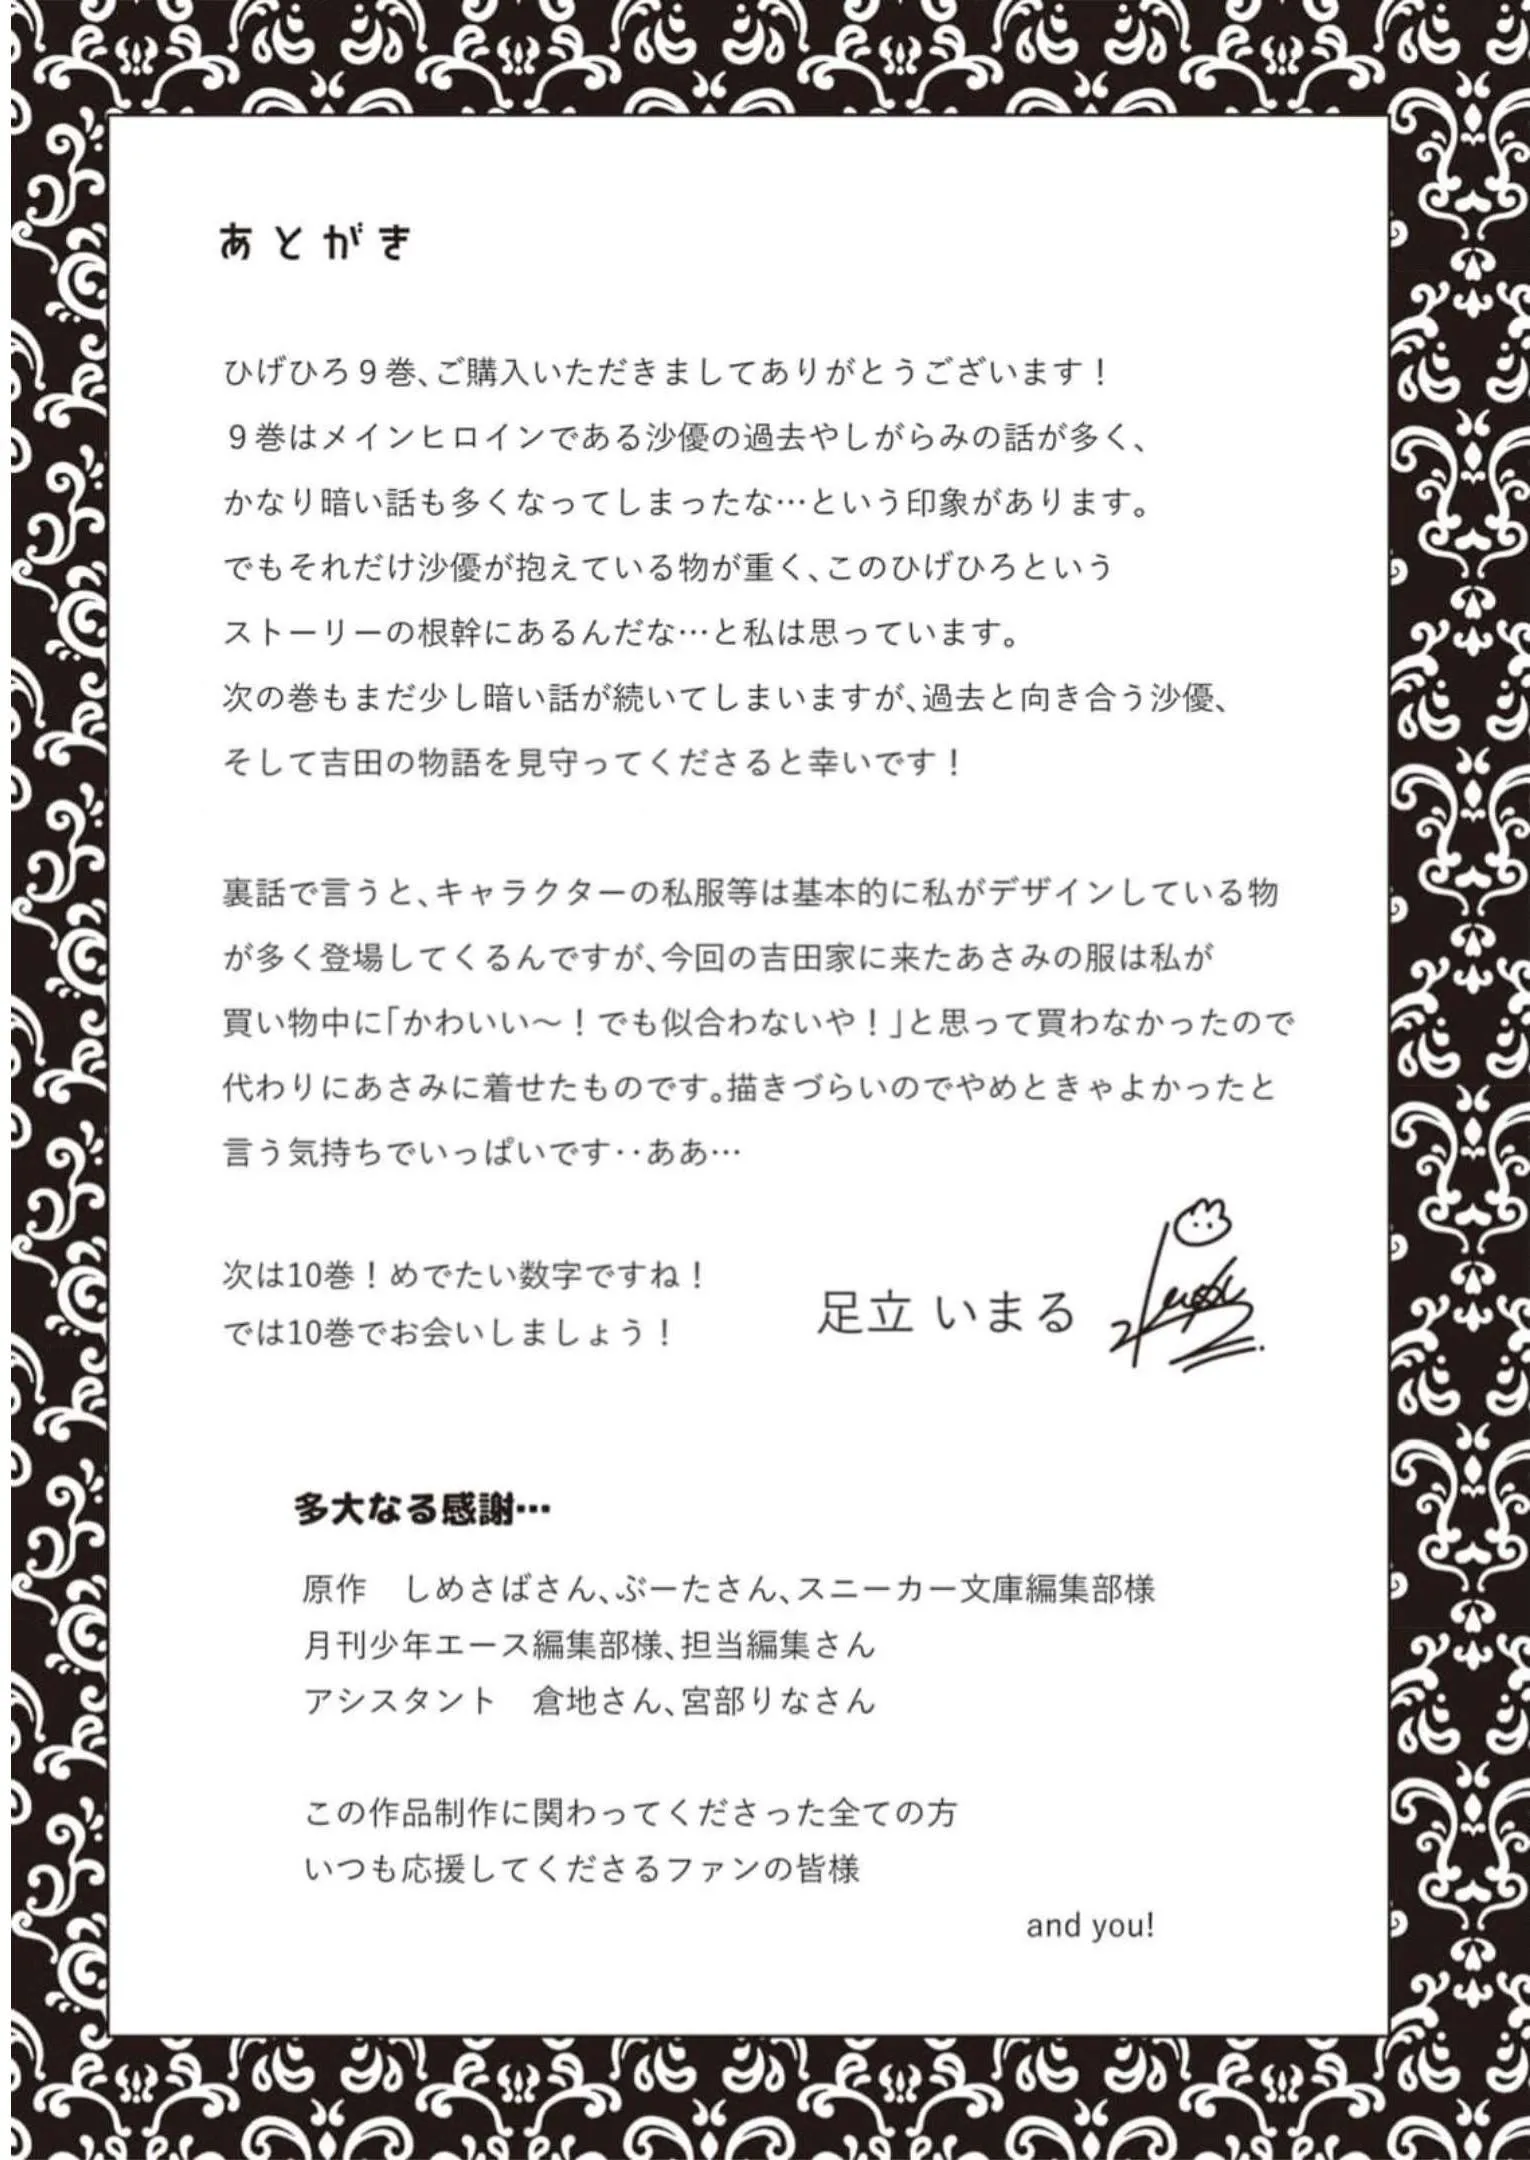 あとがき
ひげひろ９巻、ご購入いただきましてありがとうございます！
９巻はメインヒロインである沙優の過去やしがらみの話が多く、
かなり暗い話も多くなってしまったな…という印象があります。
でもそれだけ沙優が抱えている物が重く、このひげひろという
ストーリーの根幹にあるんだな…と私は思っています。
次の巻もまだ少し暗い話が続いてしまいますが、過去と向き合う沙優、
そして吉田の物語を見守ってくださると幸いです！
裏話で言うと、キャラクターの私服等は基本的に私がデザインしている物
が多く登場してくるんですが、今回の吉田家に来たあさみの服は私が
買い物中に「かわいい～！でも似合わないや！」と思って買わなかったので
代わりにあさみに着せたものです。描きづらいのでやめときゃよかったと
言う気持ちでいっぱいです‥ああ…
次は10巻！めでたい数字ですね！
では10巻でお会いしましょう！
足立 いまる
多大なる感謝…
原作　しめさばさん、ぶーたさん、スニーカー文庫編集部様
月刊少年エース編集部様、担当編集さん
アシスタント　倉地さん、宮部りなさん
この作品制作に関わってくださった全ての方
いつも応援してくださるファンの皆様
and you!